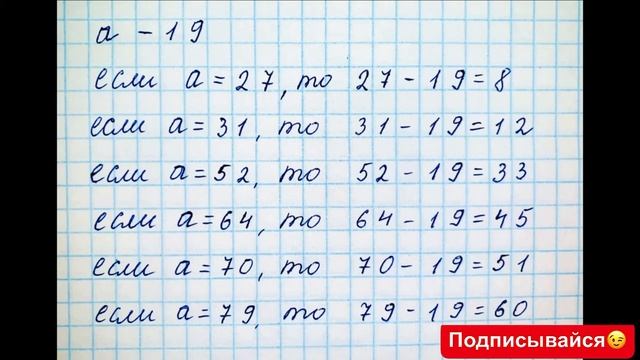 а - 19
если а = 27, то 27 - 19 = 8
если а = 31, то 31 - 19 = 12
если а = 52, то 52 - 19 = 33
если а = 64, то 64 - 19 = 45
если а = 70, то 70 - 19 = 51
если а = 79, то 79 - 19 = 60
Подписывайся😉